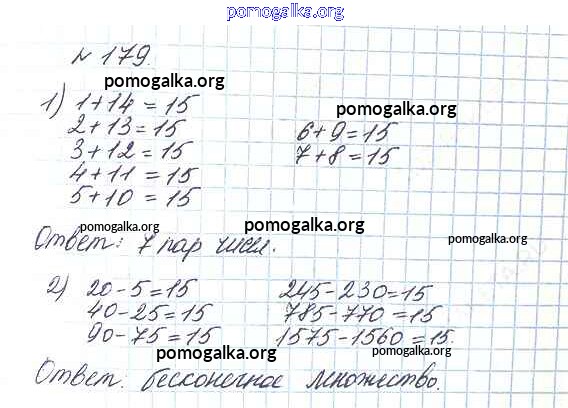 pomogalka.org
№ 179.
pomogalka.org
pomogalka.org
1) 1+14 = 15
2+13 = 15
6+9=15
3+12 = 15
7+8=15
4+11 = 15
5+10 = 15
pomogalka.org
pomogalka.org
pomogalka.org
Ответ: 7 пар чисел.
2) 20-5=15
245-230=15
40-25=15
785-770=15
90-75=15
1575-1560=15.
pomogalka.org
pomogalka.org
Ответ. бесконечное множество.